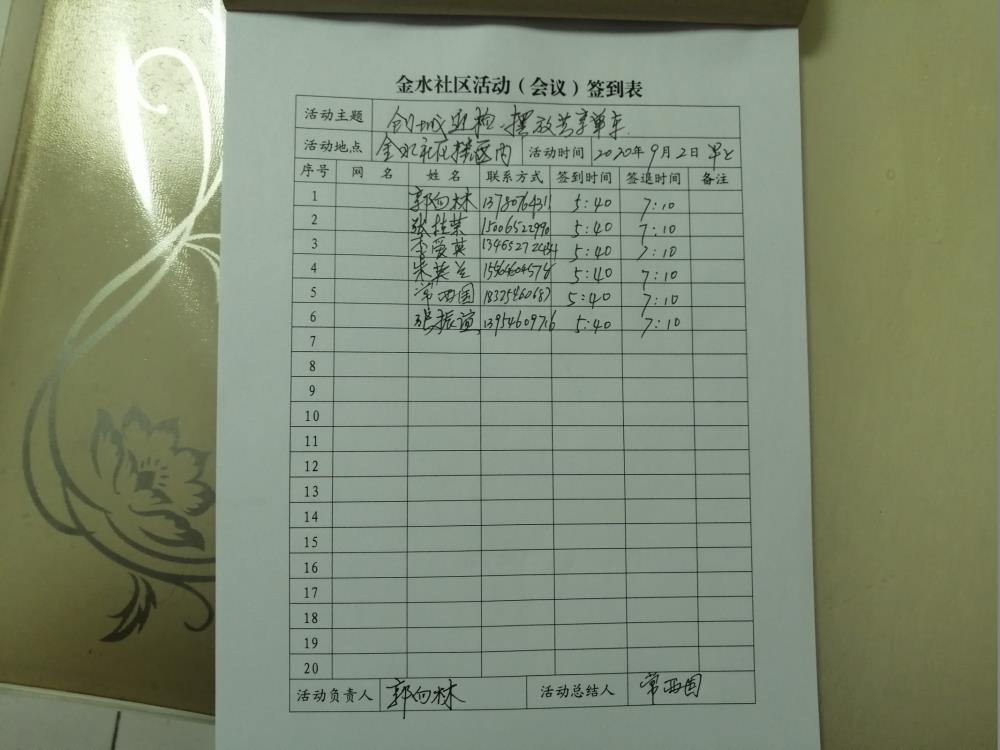 金水社区活动（会议）签到表
活动主题 创城迎检、摆放共享单车
活动地点 金水社区辖区内 活动时间 2020年9月2日 早上
序号 网 名 姓 名 联系方式 签到时间 签退时间 备注
1 郭向林 5:40 7:10
2 张桂荣 15006522990 5:40 7:10
3 李爱英 5:40 7:10
4 朱英兰 5:40 7:10
5 常西国 5:40 7:10
6 张振谊 13954609716 5:40 7:10
7
8
9
10
11
12
13
14
15
16
17
18
19
20
活动负责人 郭向林 活动总结人 常西国